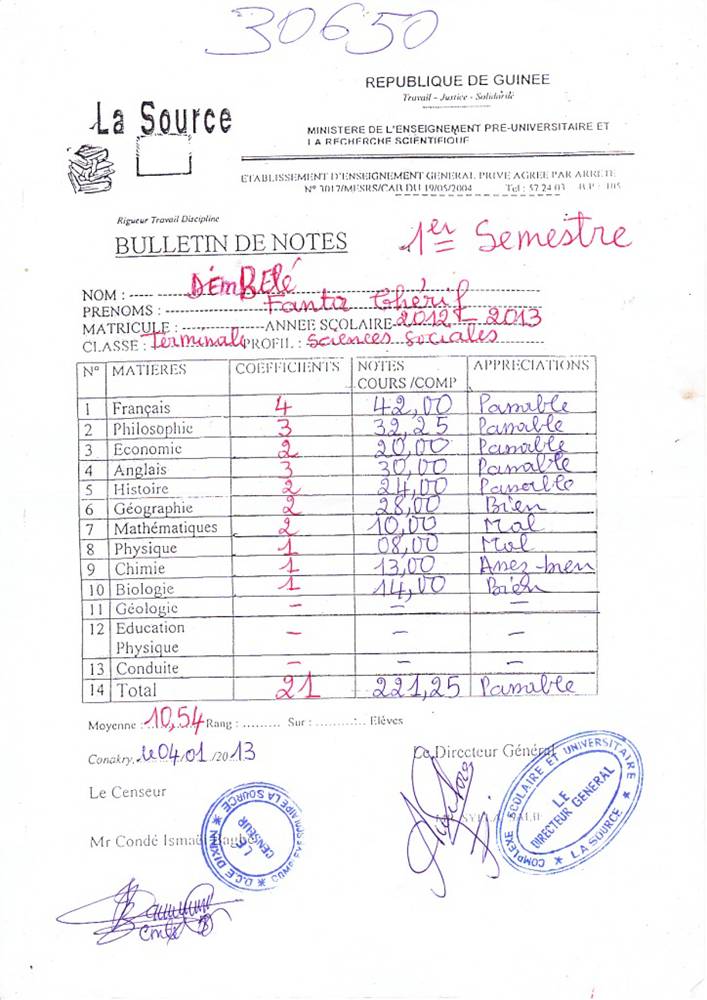 30650
REPUBLIQUE DE GUINEE
Travail – Justice - Solidarité
La Source
MINISTERE DE L'ENSEIGNEMENT PRE-UNIVERSITAIRE ET
LA RECHERCHE SCIENTIFIQUE
ETABLISSEMENT D'ENSEIGNEMENT GENERAL PRIVE AGREE PAR ARRETE
N° 3017/MESRS/CAB DU 19/05/2004 Tel : 57 24 03 B.P : 105
Rigueur Travail Discipline
BULLETIN DE NOTES 1er Semestre
NOM : DEMBELé
PRENOMS : Fanta Chérif
MATRICULE : ANNEE SCOLAIRE 2012 - 2013
CLASSE : Terminale PROFIL : Sciences Sociales
N° MATIERES COEFFICIENTS NOTES COURS /COMP APPRECIATIONS
1 Français 4 42,00 Passable
2 Philosophie 3 32,25 Passable
3 Economie 2 20,00 Passable
4 Anglais 3 30,00 Passable
5 Histoire 2 24,00 Passable
6 Géographie 2 28,00 Bien
7 Mathématiques 2 10,00 Mal
8 Physique 1 08,00 Mal
9 Chimie 1 13,00 Assez-bien
10 Biologie 1 14,00 Bien
11 Géologie – – –
12 Education Physique – – –
13 Conduite – – –
14 Total 21 221,25 Passable
Moyenne : 10,54 Rang : ......... Sur : ......... Elèves
Conakry, le 04/01/2013
Le Directeur Général
Le Censeur
COMPLEXE SCOLAIRE ET UNIVERSITAIRE
LE DIRECTEUR GENERAL
* LA SOURCE *
Mr Condé Ismaël
LE CENSEUR
D.C.E DIXINN